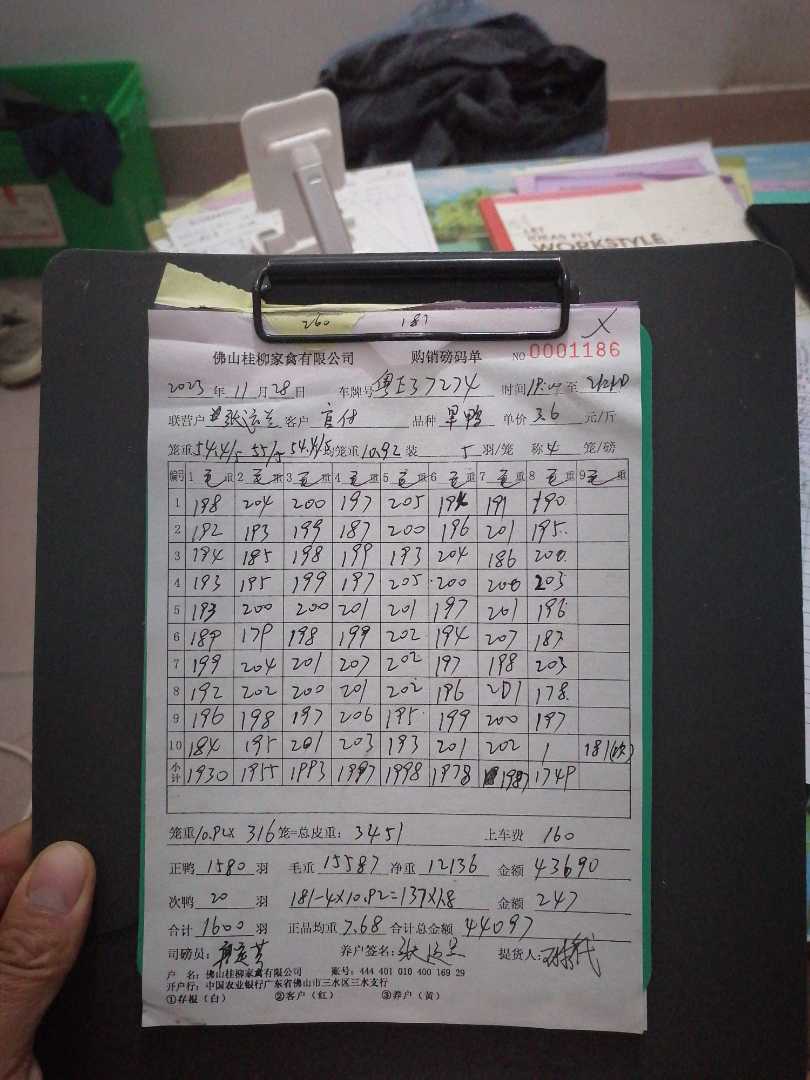 LET
IDEAS FLY
WORKSTYLE
260 187
佛山桂柳家禽有限公司 购销磅码单 NO 0001186
2023年11月28日 车牌号粤E37274 时间 至
联营户 客户 品种 单价3.6元/斤
笼重54.4/5 55/5 54.4/5均笼重10.92装5羽/笼 称4笼/磅
编号 1毛重 2毛重 3毛重 4毛重 5毛重 6毛重 7毛重 8毛重 9毛重
1 198 204 200 197 205 191 190
2 192 193 199 187 200 196 201 195
3 194 185 198 199 193 204 186 200
4 193 195 199 197 205 200 200 203
5 193 200 200 201 201 197 201 196
6 189 179 198 199 202 194 207 187
7 199 204 201 207 202 197 198 203
8 192 202 200 201 202 196 201 178
9 196 198 197 206 195 199 200 197
10 184 195 201 203 193 201 202 1 181(次)
小计 1930 1955 1993 1997 1998 1978 1987 1749
笼重10.92X 316笼=总皮重：3451 上车费 160
正鸭1580羽 毛重15587净重12136金额43690
次鸭20羽 181-4X10.92=137X1.8 金额247
合计1600羽 正品均重7.68合计总金额44097
司磅员： 养户签名： 提货人：
户 名：佛山桂柳家禽有限公司 账号：444 401 010 400 169 29
开户行：中国农业银行广东省佛山市三水区三水支行
①存根（白） ②客户（红） ③养户（黄）